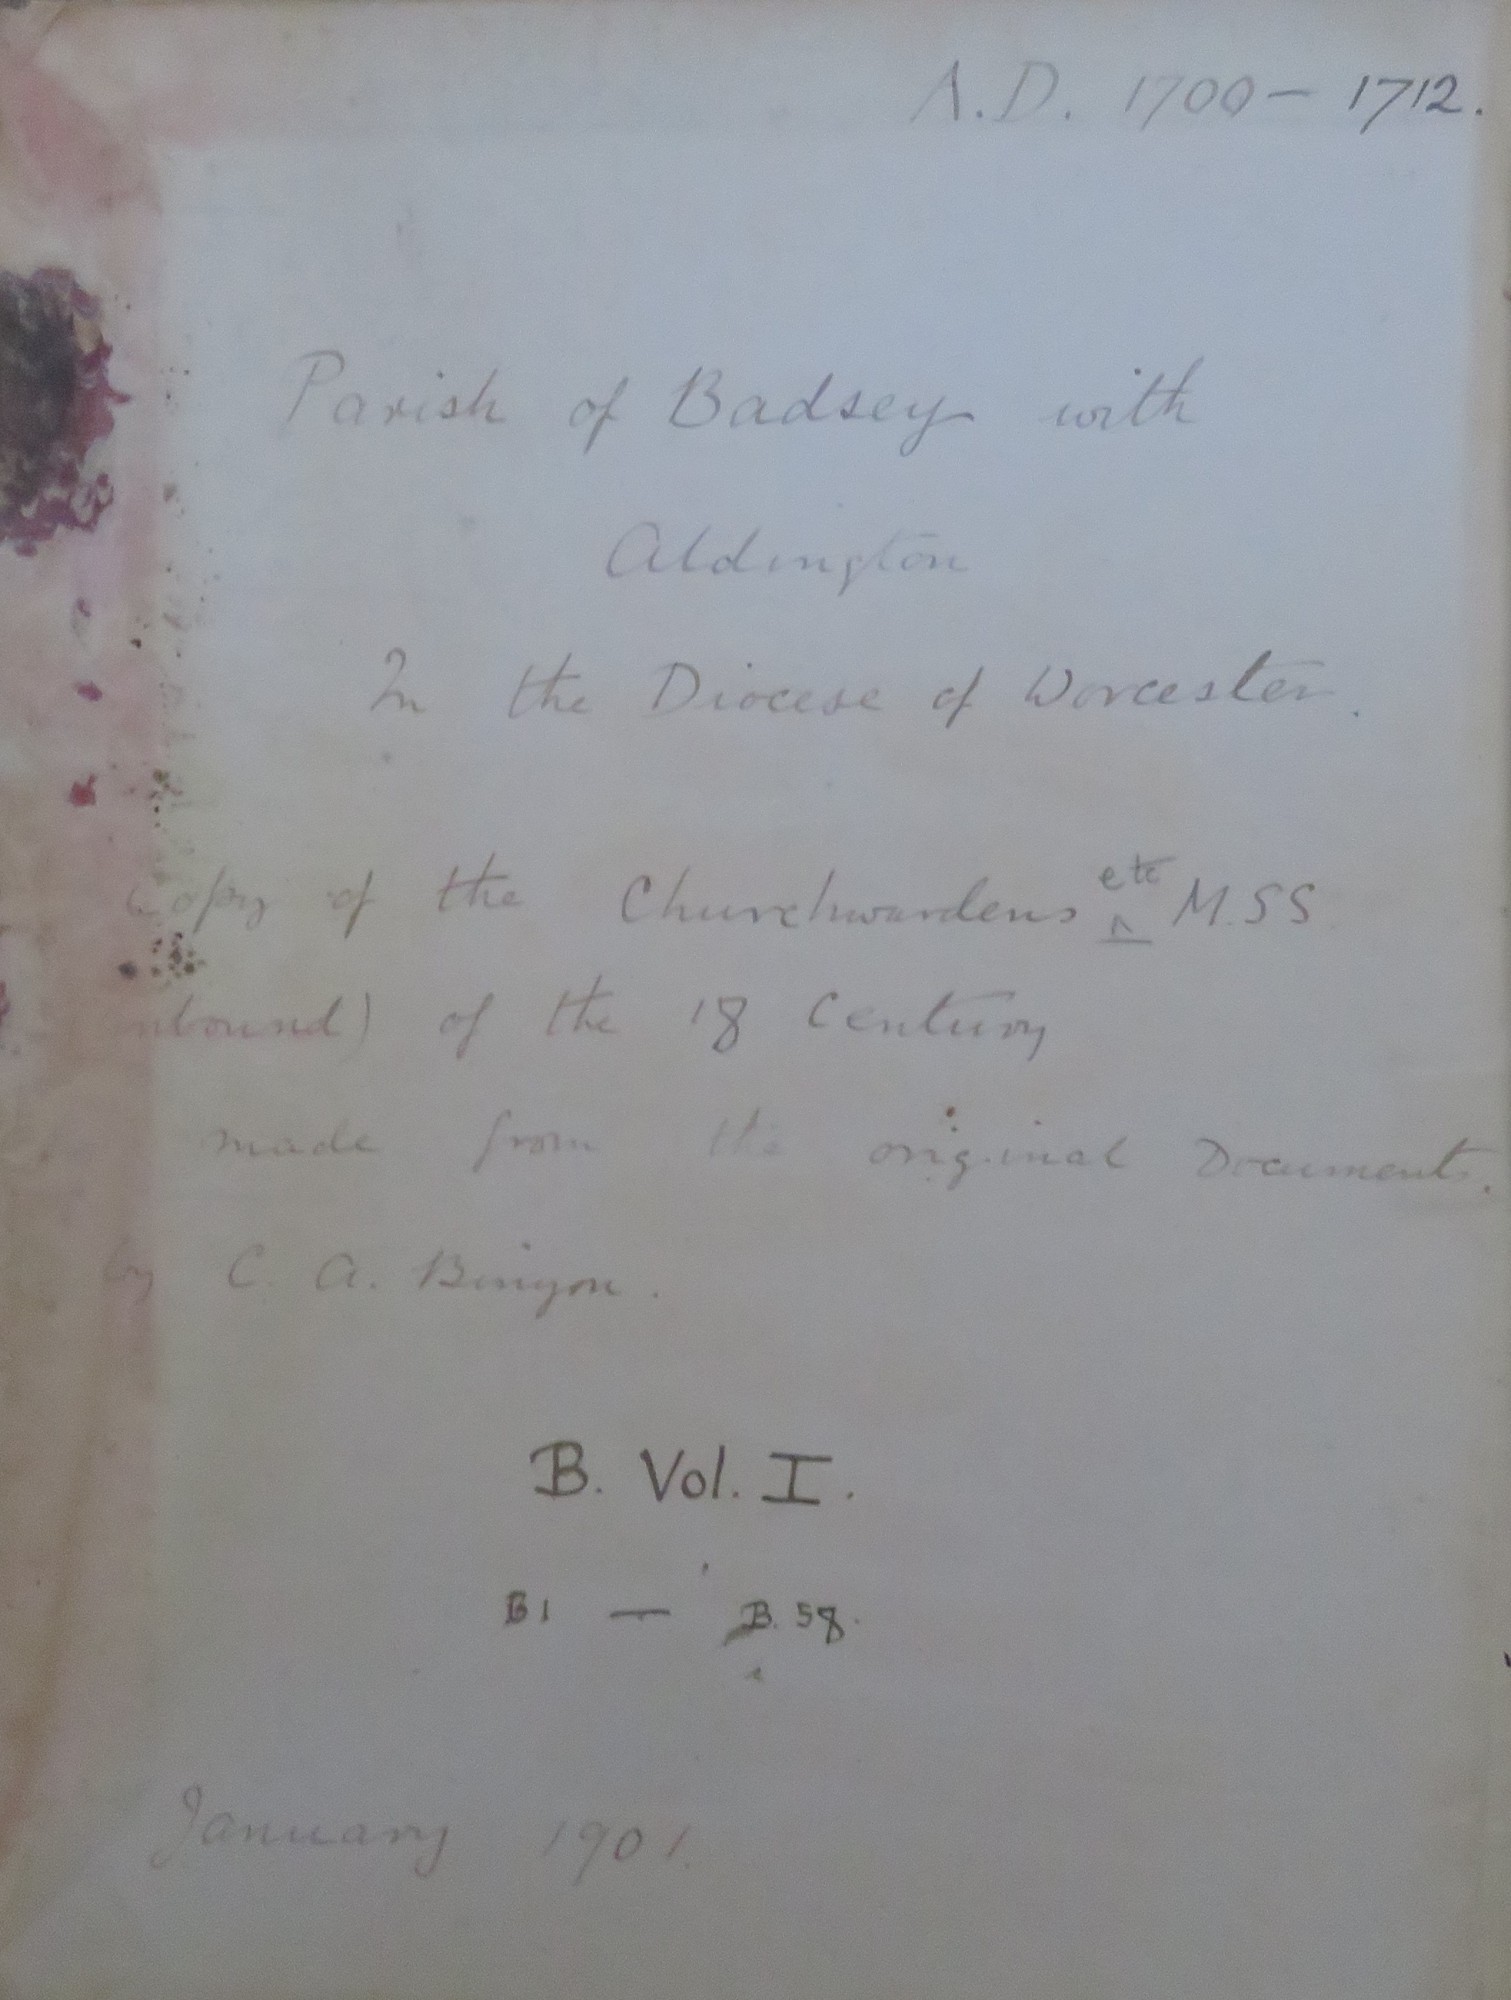 A.D. 1700 – 1712.
Parish of Badsey with
Aldington
In the Diocese of Worcester.
Copy of the Churchwardens etc M.SS.
nbound) of the 18 Century
made from the original Documents.
by C. A. Binyon.
B. Vol. I.
B1 — B. 58.
January 1901.